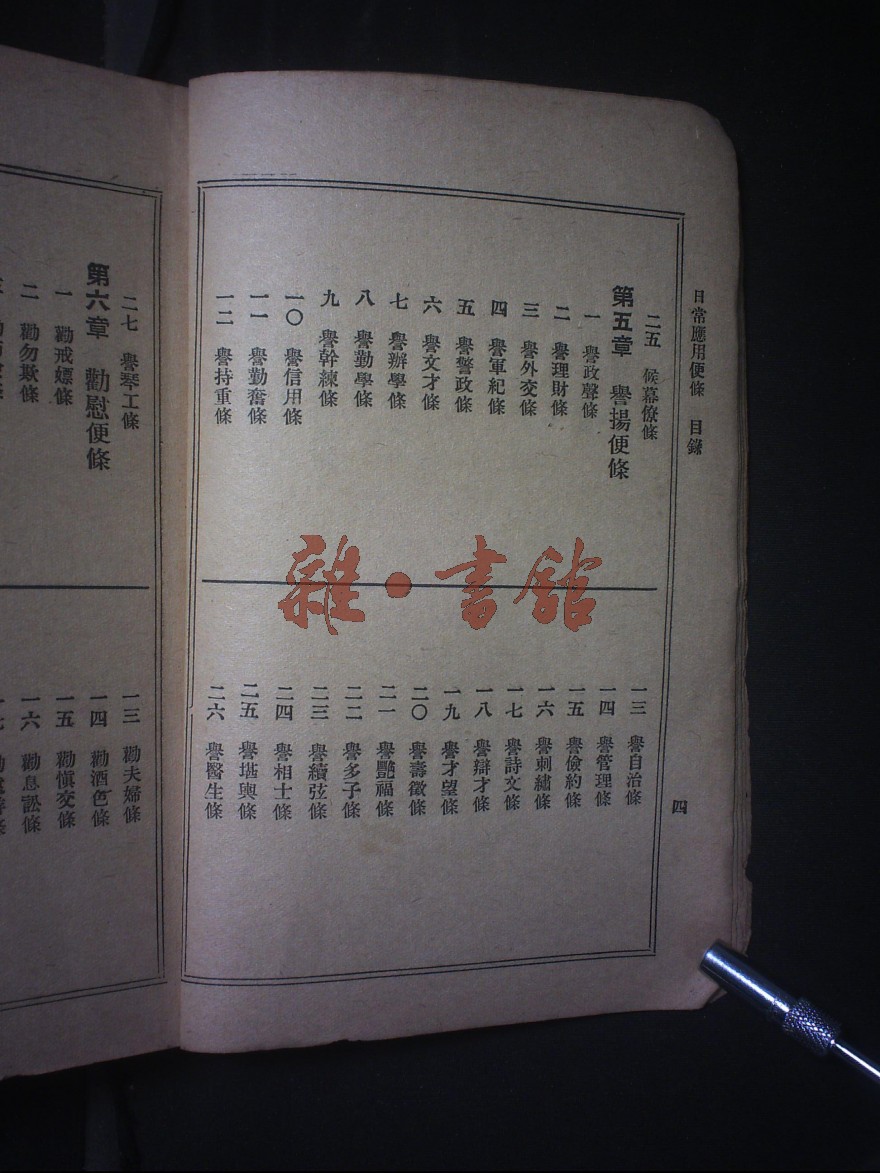 日常應用便條 目錄
四
二五 候幕僚條
第五章 譽揚便條
一 譽政聲條
二 譽理財條
三 譽外交條
四 譽軍紀條
五 譽警政條
六 譽文才條
七 譽辦學條
八 譽勤學條
九 譽幹練條
一〇 譽信用條
一一 譽勤奮條
一二 譽持重條
一三 譽自治條
一四 譽管理條
一五 譽儉約條
一六 譽刺繡條
一七 譽詩文條
一八 譽辯才條
一九 譽才望條
二〇 譽壽徵條
二一 譽艷福條
二二 譽多子條
二三 譽續弦條
二四 譽相士條
二五 譽堪輿條
二六 譽醫生條
二七 譽琴工條
第六章 勸慰便條
一 勸戒嫖條
二 勸勿欺條
一三 勸夫婦條
一四 勸酒色條
一五 勸愼交條
一六 勸息訟條
雜·書館